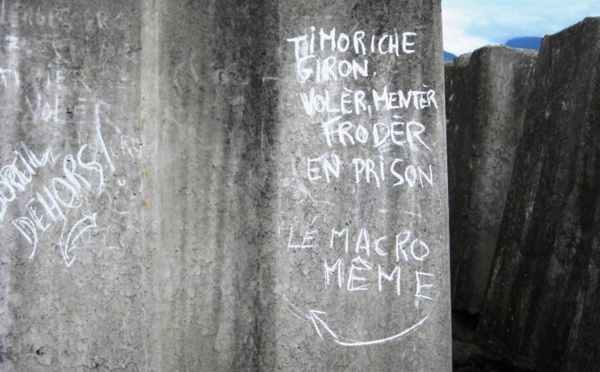 TIMORICHE
GIRON.
VOLÈR, MENTÈR
FRODÈR
EN PRISON
LÉ MACRO
MÊME
DEHORS!